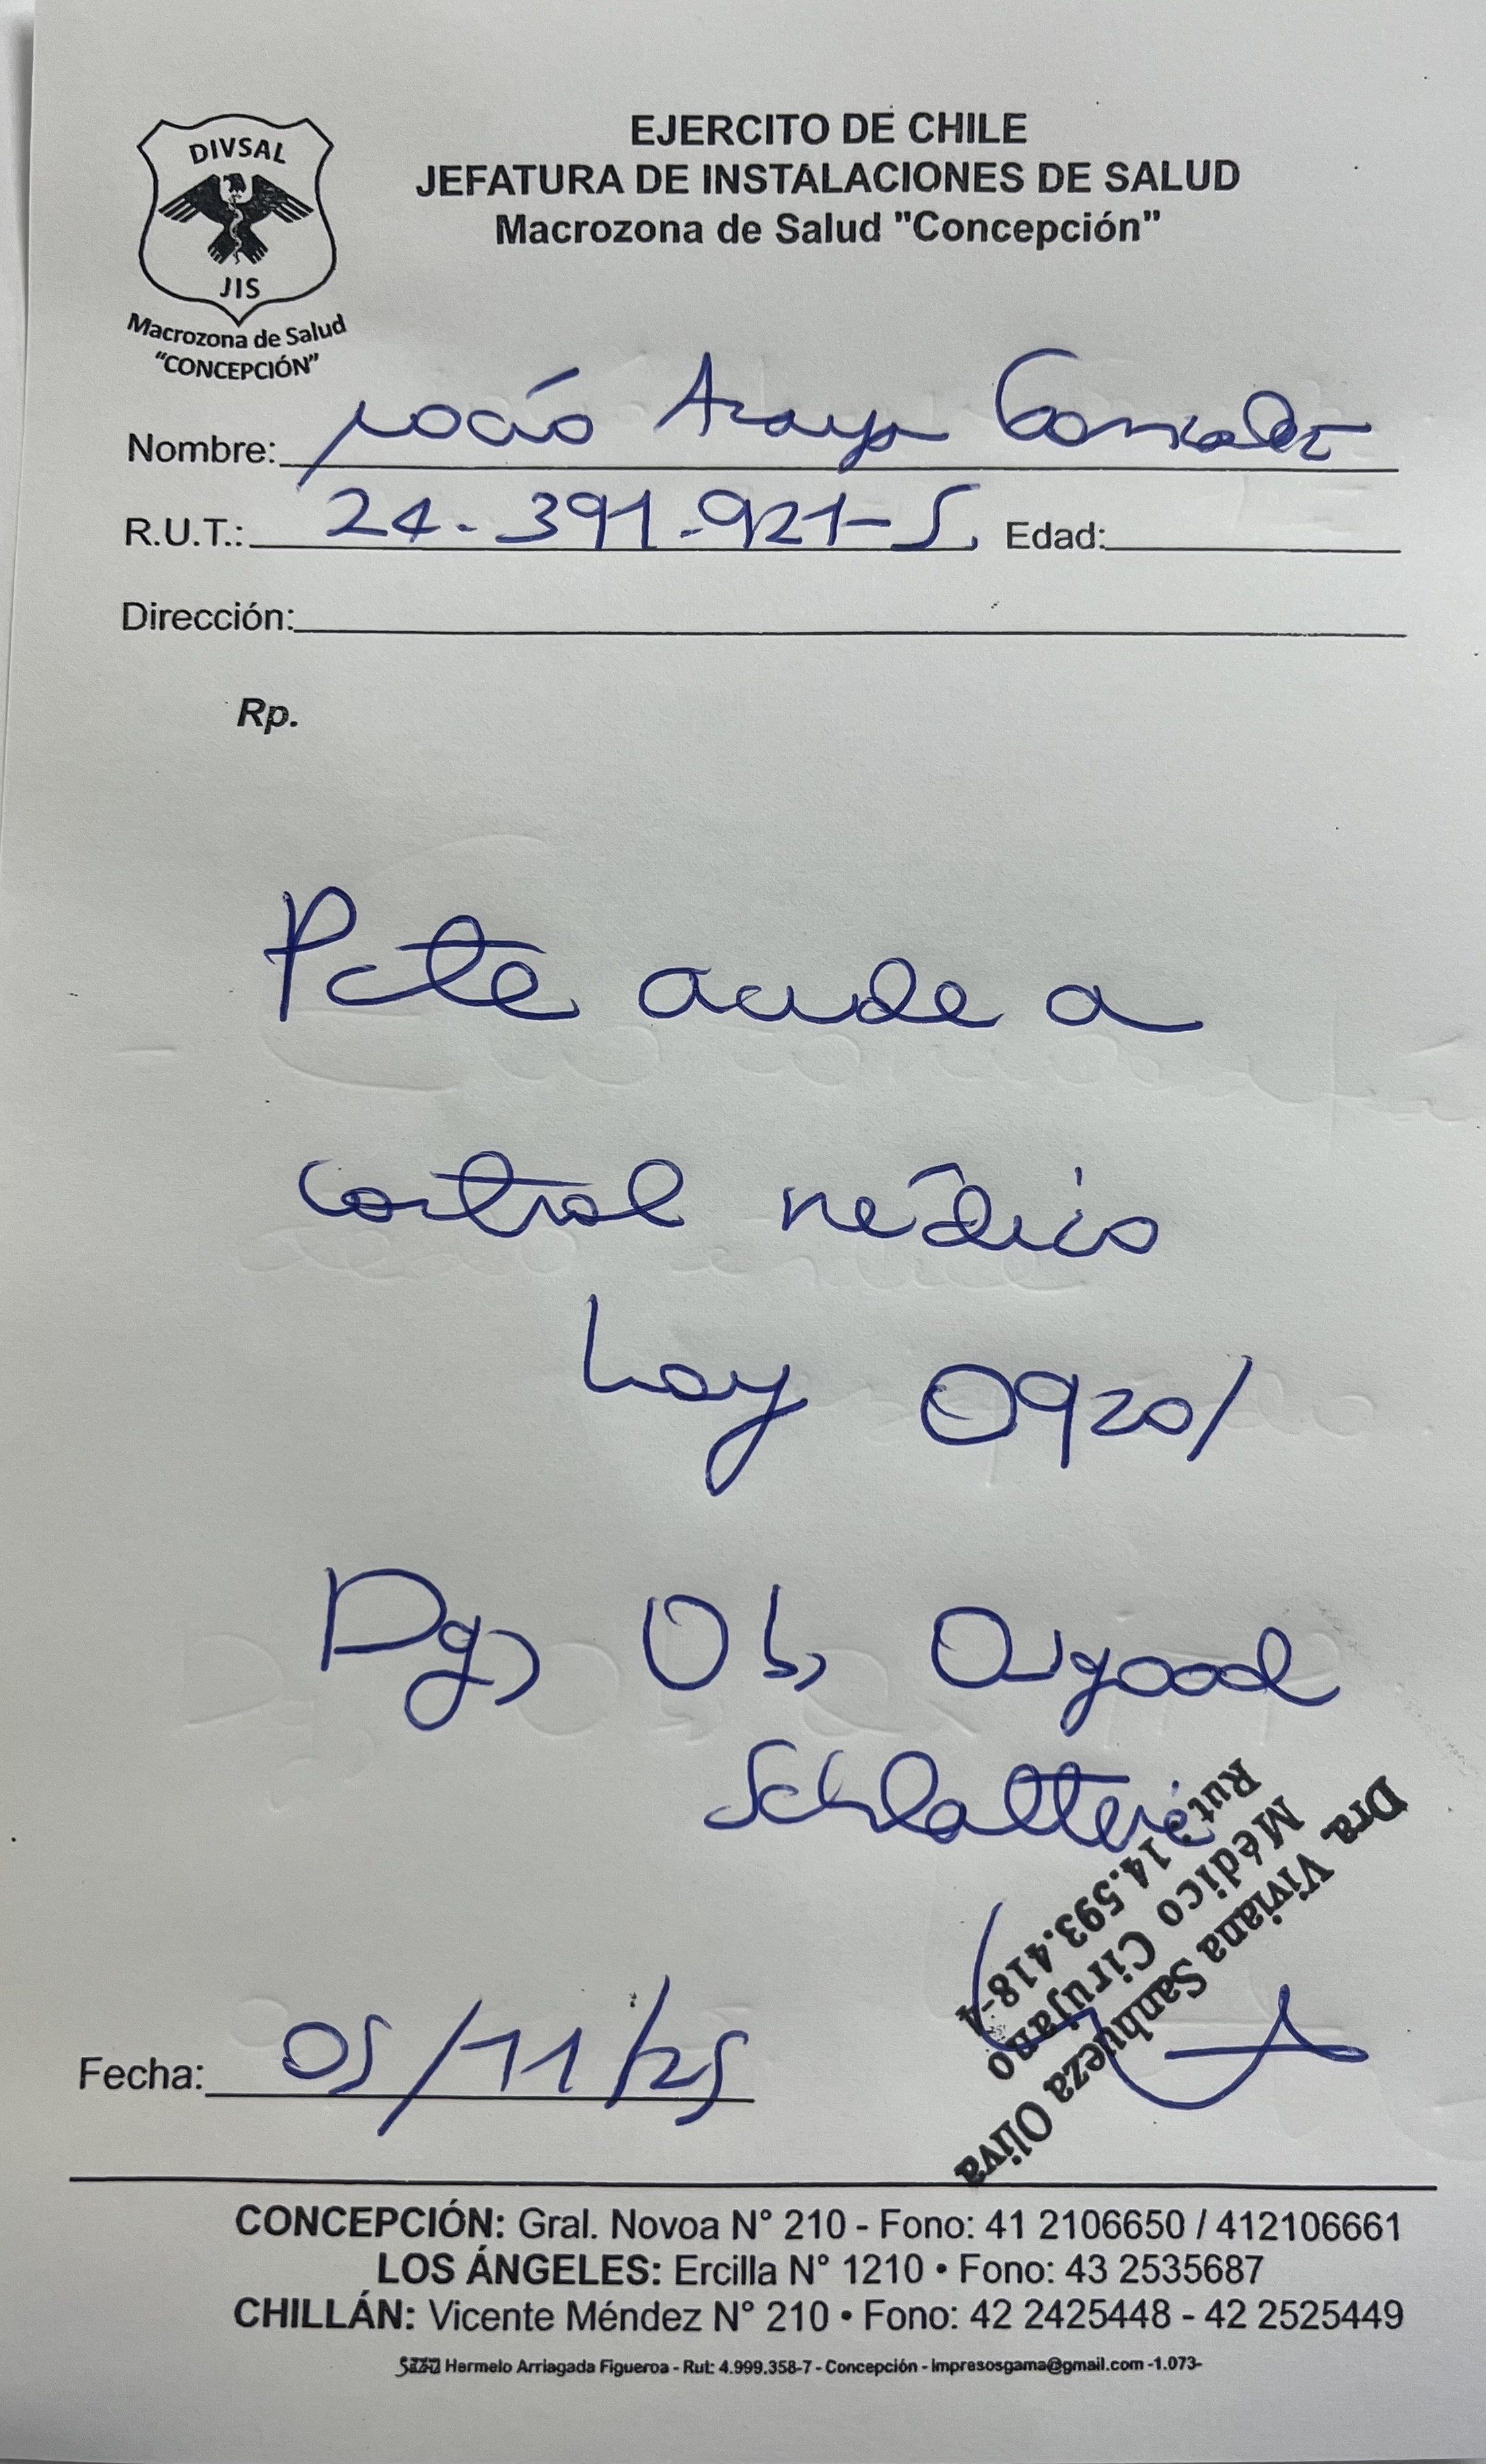 DIVSAL
JIS
Macrozona de Salud
"CONCEPCIÓN"
EJERCITO DE CHILE
JEFATURA DE INSTALACIONES DE SALUD
Macrozona de Salud "Concepción"
Nombre: Rocío Araya Gonzalez
R.U.T.: 24.391.921-5 Edad:
Dirección:
Rp.
Pcte acude a
control médico
hoy 0920/
Dg, Ob, Osgood
Schlatter
Dra. Viviana Sanhueza Oliva
Médico Cirujano
Rut: 14.593.418-4
Fecha: 05/11/25
CONCEPCIÓN: Gral. Novoa N° 210 - Fono: 41 2106650 / 412106661
LOS ÁNGELES: Ercilla N° 1210 • Fono: 43 2535687
CHILLÁN: Vicente Méndez N° 210 • Fono: 42 2425448 - 42 2525449
Hermelo Arriagada Figueroa - Rut: 4.999.358-7 - Concepción - impresosgama@gmail.com -1.073-